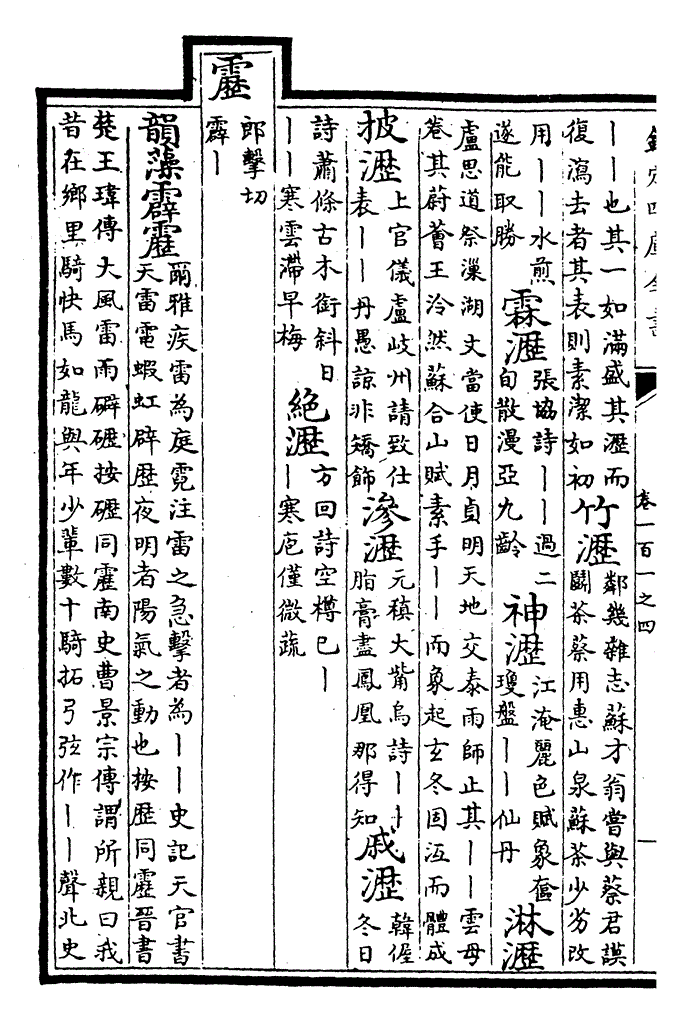 欽定四庫全書
卷一百一之四
丨丨也其一如滿盛其瀝而
復瀉去者其表則素潔如初
竹瀝
鄰幾雜志蘇才翁嘗與蔡君謨
鬬茶蔡用惠山泉蘇茶少劣改
用丨丨水煎
遂能取勝
霖瀝
張協詩丨丨過二
旬散漫亞九齡
神瀝
江淹麗色賦象奩
瓊盤丨丨仙丹
淋瀝
盧思道祭漅湖文當使日月貞明天地交泰雨師止其丨丨雲母
卷其蔚薈王泠然蘇合山賦素手丨丨而象起玄冬固沍而體成
披瀝
上官儀盧岐州請致仕
表丨丨丹愚諒非矯飾
滲瀝
元稹大觜烏詩丨丨
脂膏盡鳳凰那得知
戚瀝
韓偓
冬日
詩蕭條古木銜斜日
丨丨寒雲滯早梅
絶瀝
方回詩空樽已丨
丨寒庖僅微蔬
靂
郎擊切
霹丨
韻藻霹靂
爾雅疾雷為庭霓注雷之急擊者為丨丨史記天官書
天雷電蝦虹辟歷夜明者陽氣之動也按歷同靂晉書
楚王瑋傳大風雷雨礔礰按礰同靂南史曹景宗傳謂所親曰我
昔在鄉里騎快馬如龍與年少輩數十騎拓弓弦作丨丨聲北史